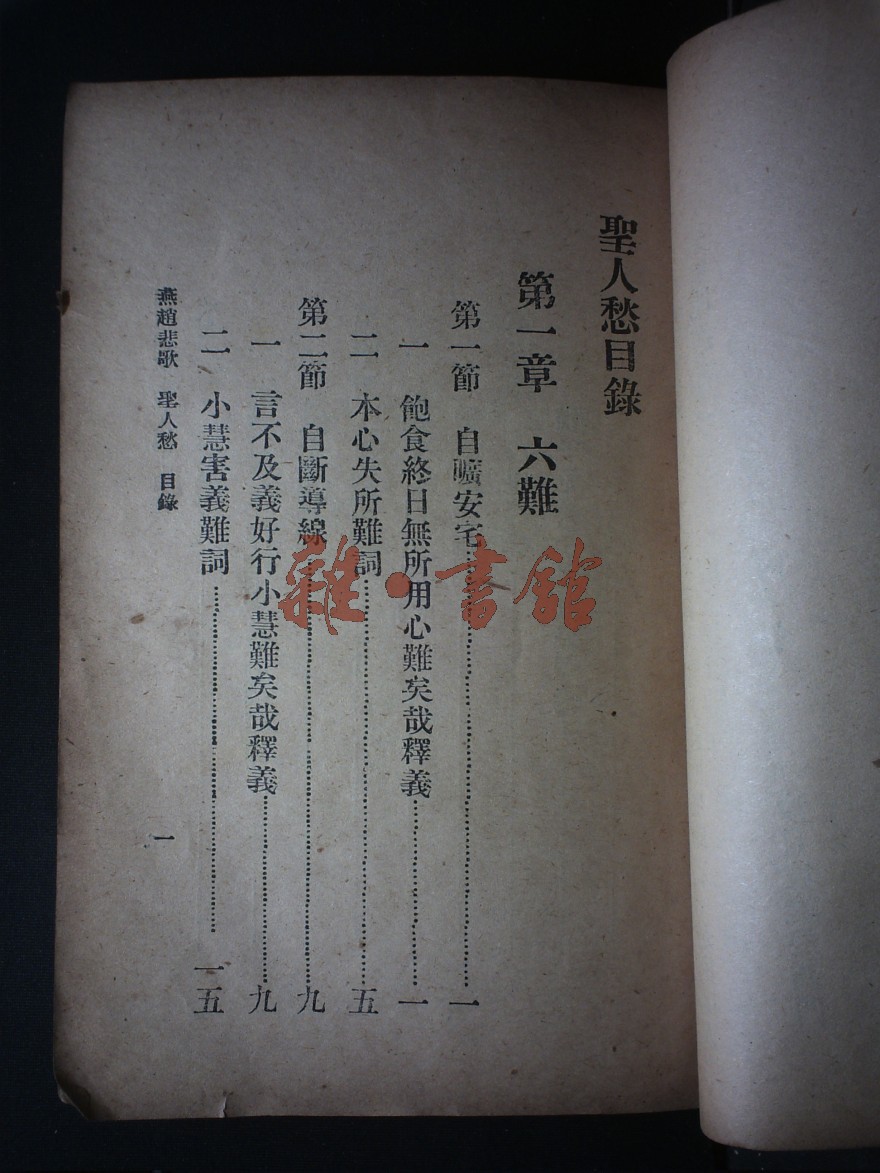 聖人愁目錄
第一章　六難
第一節　自曠安宅……一
一　飽食終日無所用心難矣哉釋義……一
二　本心失所難詞……五
第二節　自斷導線……九
一　言不及義好行小慧難矣哉釋義……九
二　小慧害義難詞……一五
燕趙悲歌　聖人愁　目錄　一
雜·書館